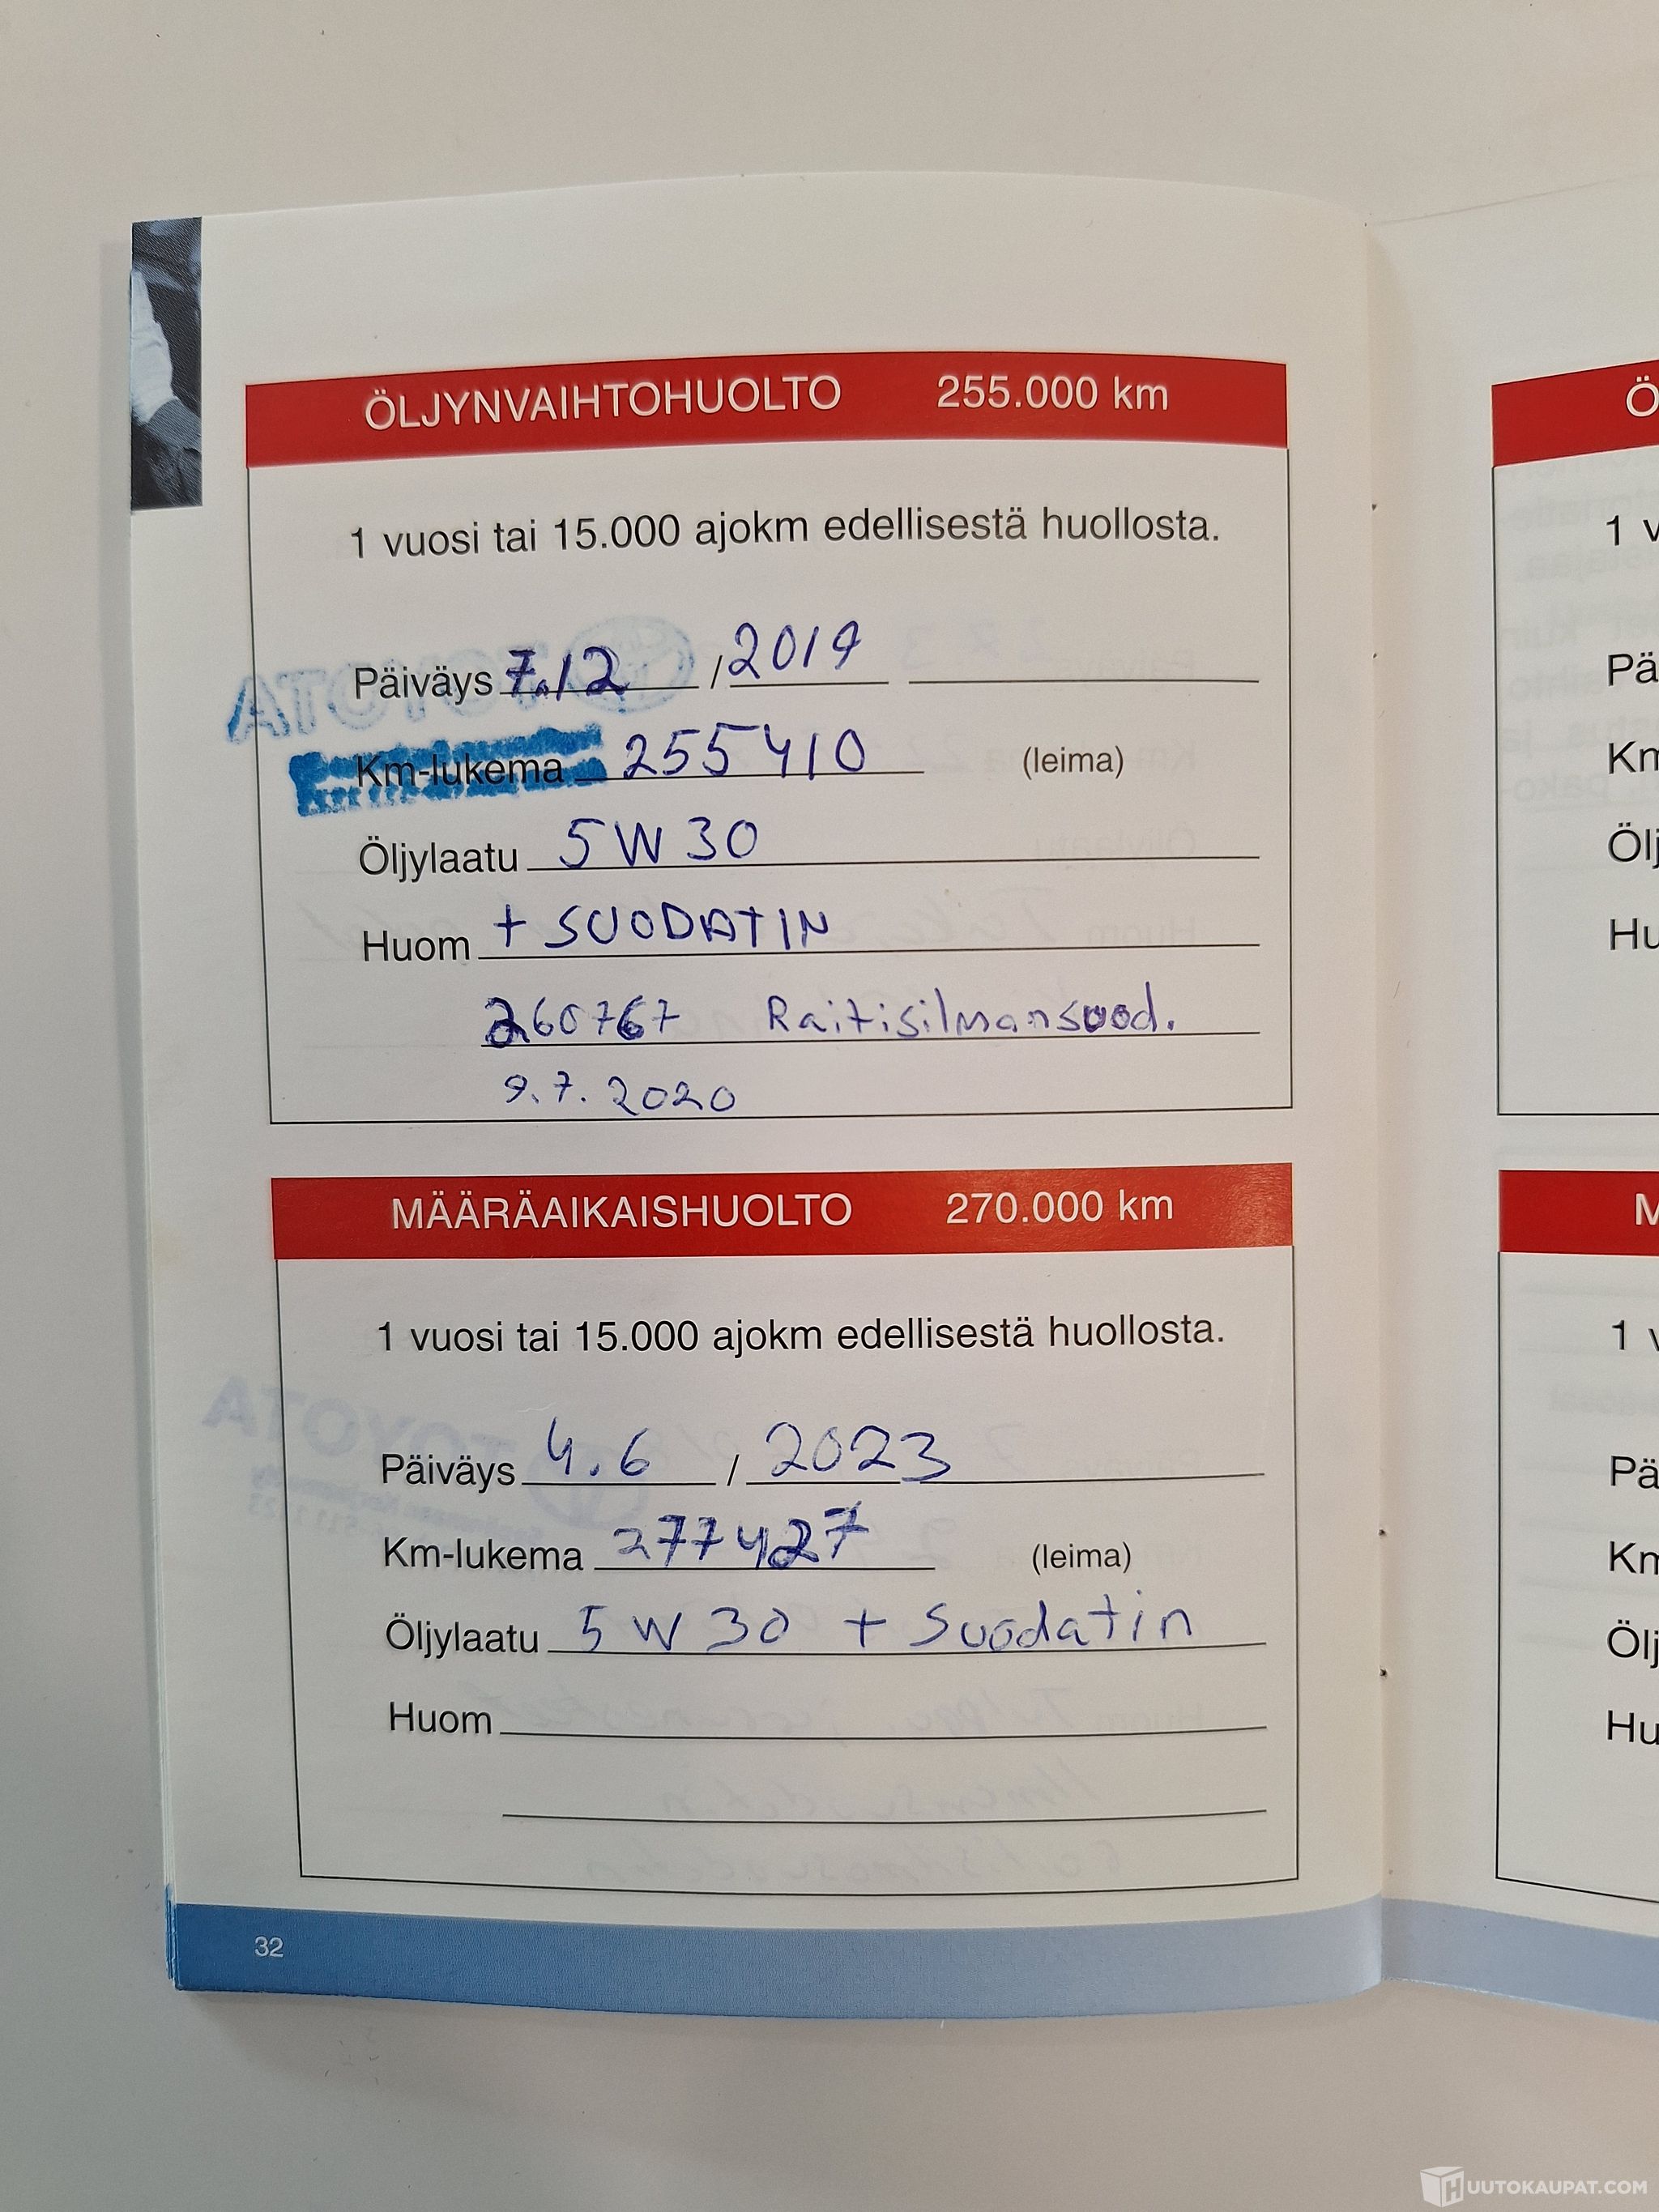 ÖLJYNVAIHTOHUOLTO 255.000 km
1 vuosi tai 15.000 ajokm edellisestä huollosta.
Päiväys 7.12 / 2019
Km-lukema 255410 (leima)
Öljylaatu 5W30
Huom + SUODATIN
260767 Raitisilmansuod.
9.7.2020
MÄÄRÄAIKAISHUOLTO 270.000 km
1 vuosi tai 15.000 ajokm edellisestä huollosta.
Päiväys 4.6 / 2023
Km-lukema 277427 (leima)
Öljylaatu 5W30 + Suodatin
Huom
32
TOYOTA
TOYOTA
Ö
1 v
Pä
Km
Ölj
Hu
M
1 v
Pä
Km
Ölj
Hu
HUUTOKAUPAT.COM